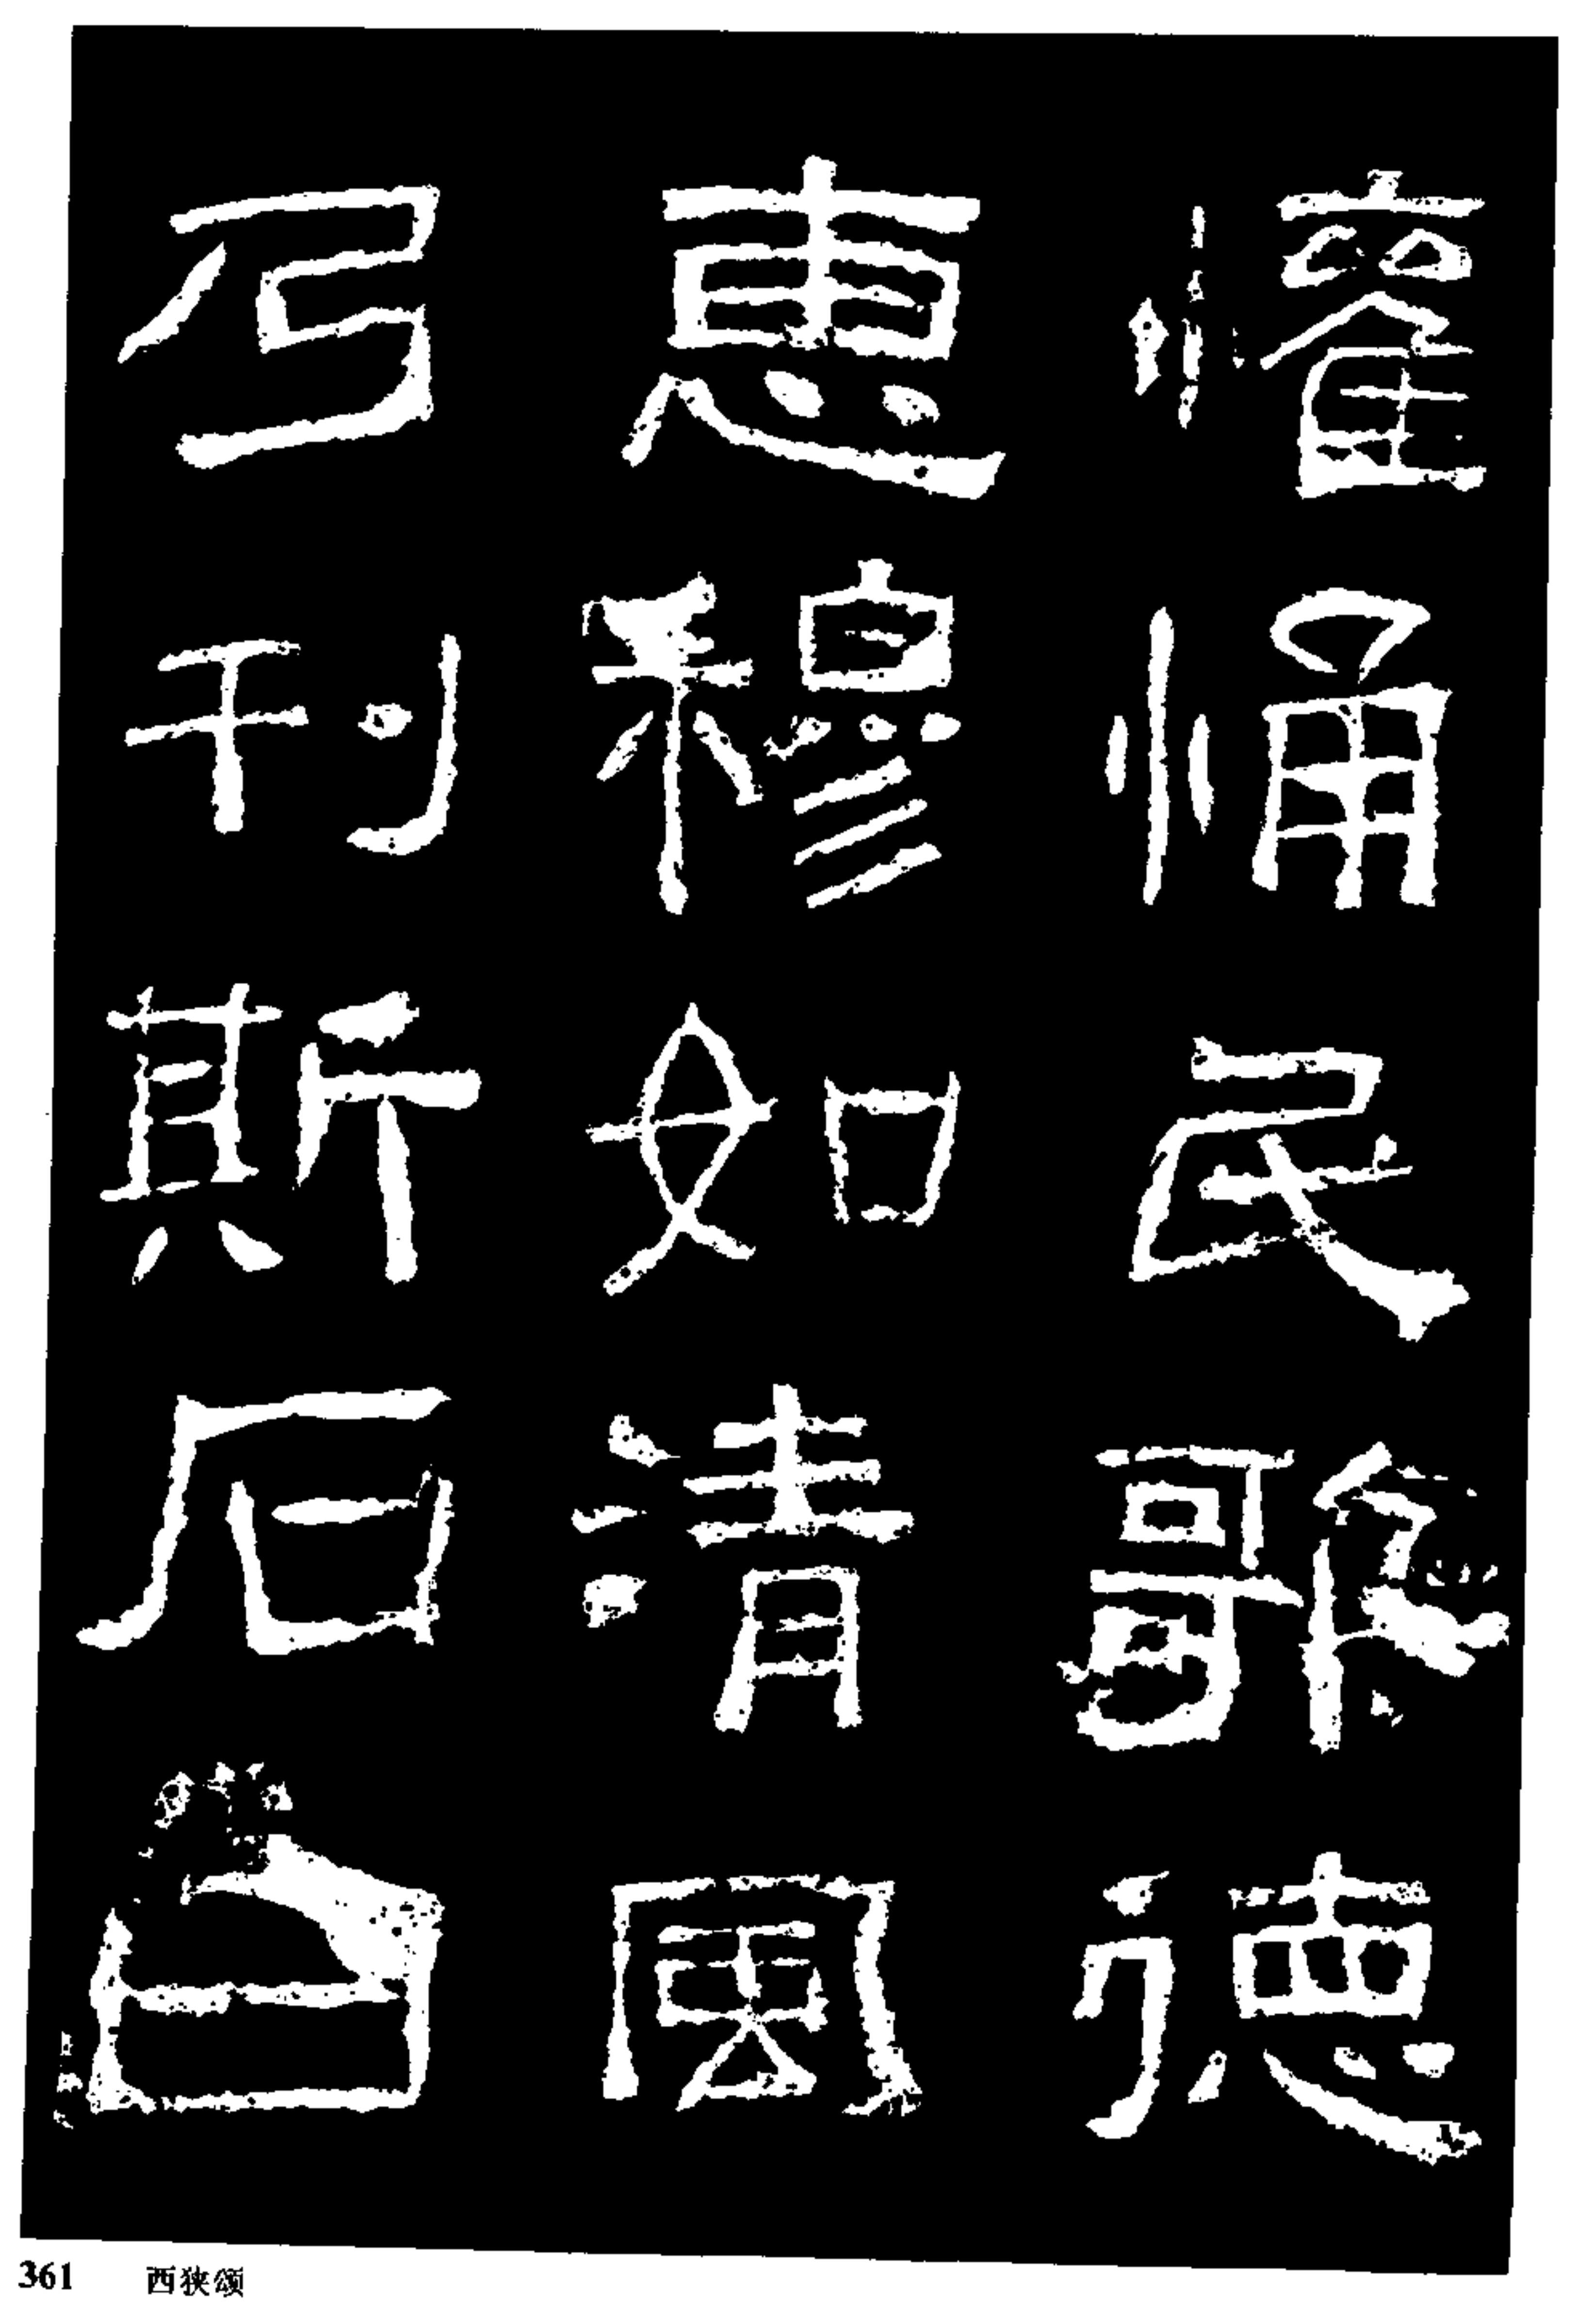 懽悀民歌德
惠穆如清風
乃刊斯石曰
361 西狭颂